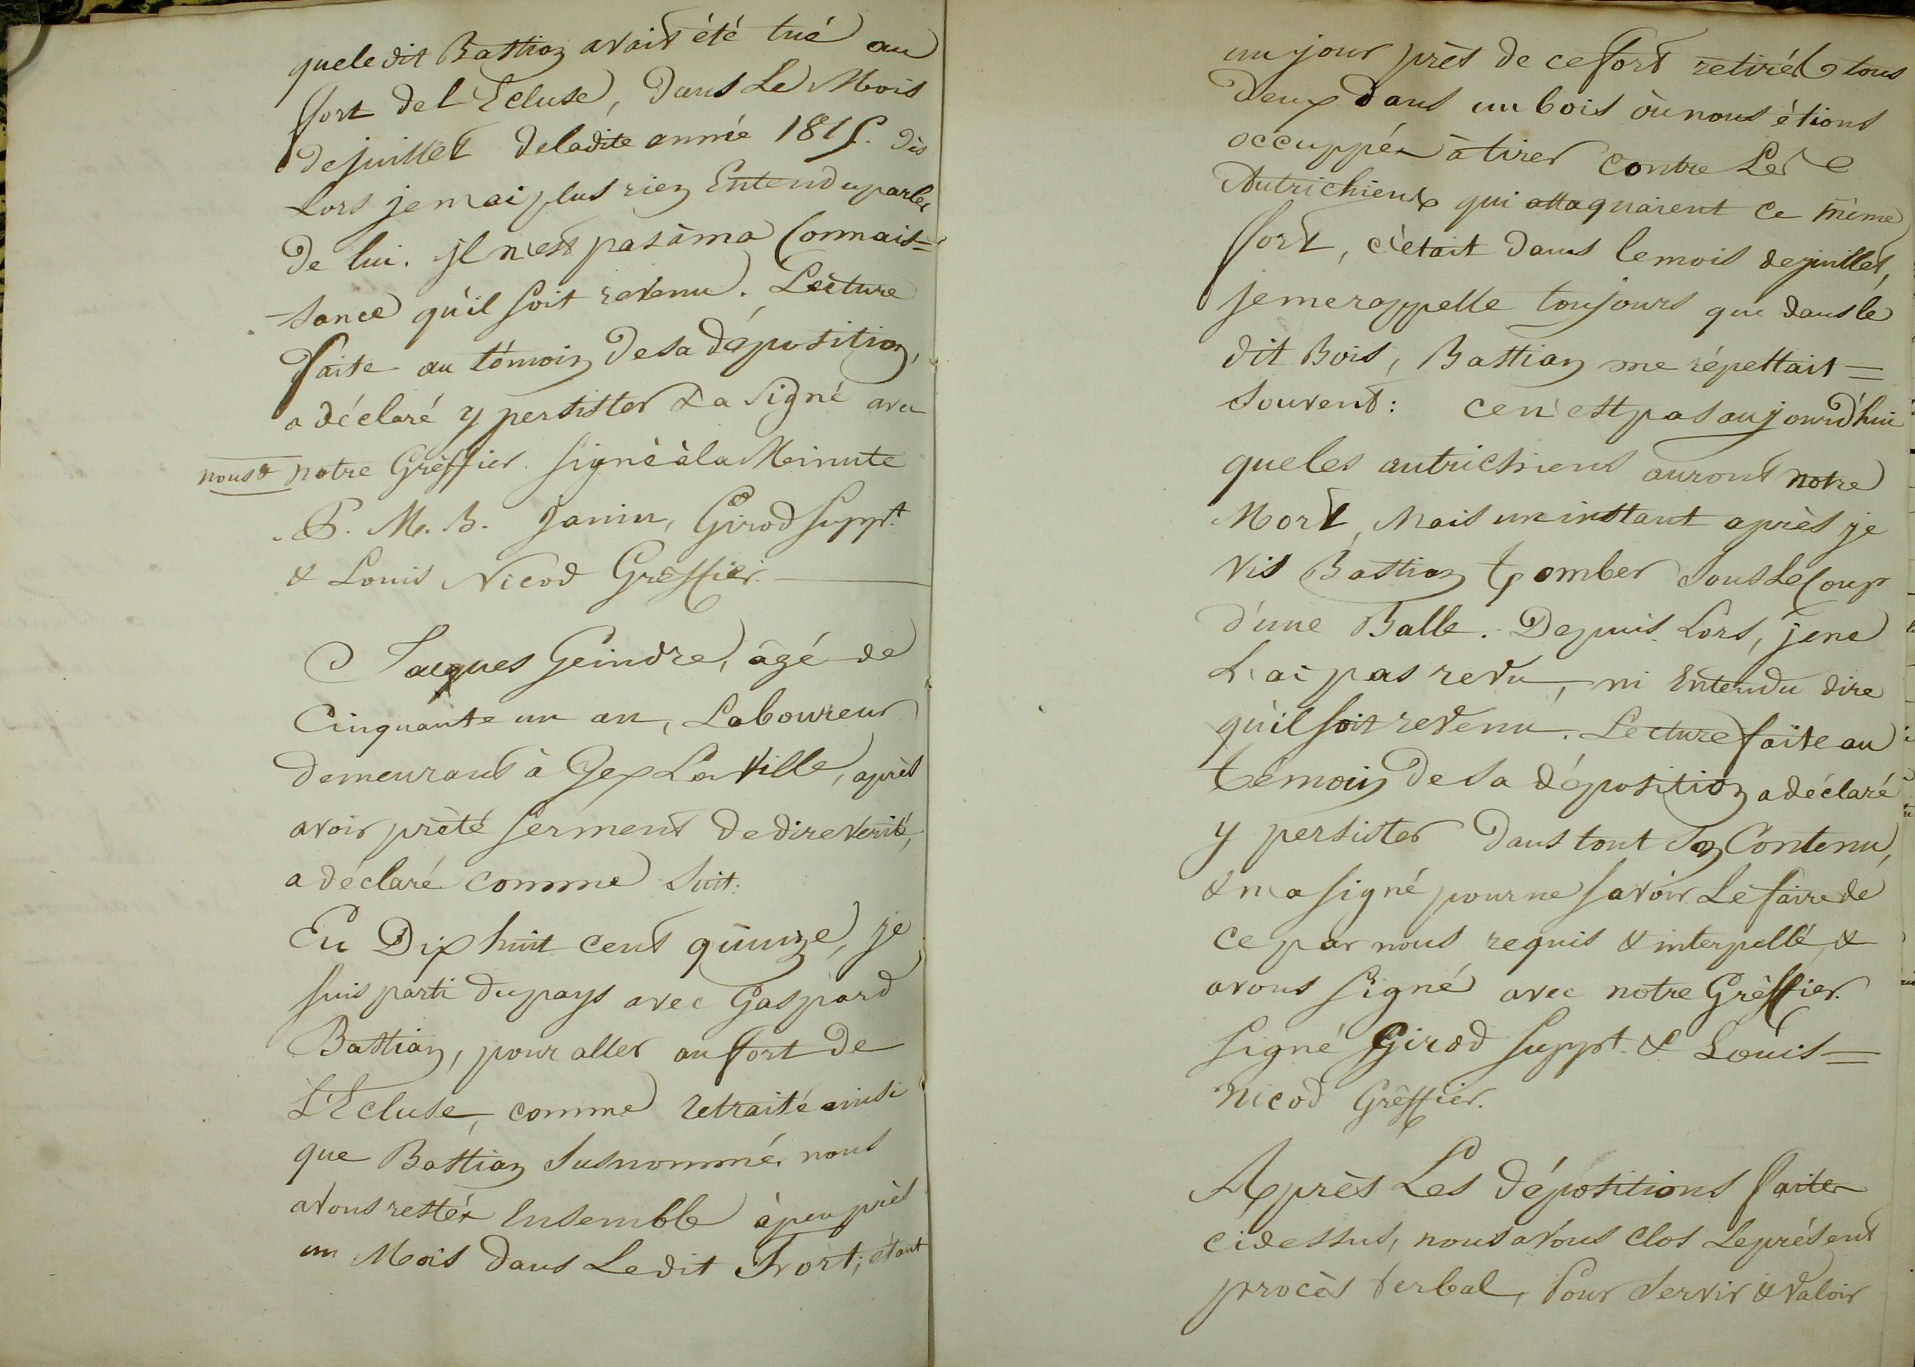 que le dit Bastian avait été tué au
fort de l'Ecluse, dans Le Mois
de juillet de ladite année 1815. dès
Lors je n'ai plus rien Entendu parler
de lui. il n'est pas à ma Connais=
=sance qu'il soit revenu. Lecture
faite au témoin de sa déposition,
a déclaré y persister & a Signé avec
nous & notre Greffier. signé à la Minute
P. M. B. Janin, Girod suppt.
& Louis Nicod Greffier.
Jacques Geindre, âgé de
Cinquante un an, Laboureur
demeurant à Gex La Ville, après
avoir prêté serment de dire verité,
a déclaré comme suit.
En Dix huit cent quinze, je
suis parti du pays avec Gaspard
Bastian, pour aller au fort de
L'Ecluse, comme retraité ainsi
que Bastian susnommé. nous
avons restés Ensemble à peu près
un Mois dans Le dit Fort; étant
un jour près de ce fort retirés tous
deux dans un bois où nous étions
occuppés à tirer contre Les
Autrichiens qui attaquaient ce même
fort, c'était dans le mois de juillet,
je me rappelle toujours que dans le
dit Bois, Bastian me répettait =
souvent: ce n'est pas aujourd'hui
que les autrichiens auront notre
Mort, Mais un instant après je
vis Bastian tomber sous Le Coup
d'une Balle. Depuis Lors, je ne
L'ai pas revu, ni Entendu dire
qu'il soit revenu. Lecture faite au
témoin de sa déposition a déclaré
y persister dans tout son Contenu,
& n'a signé pour ne savoir Le faire de
ce par nous requis & interpellé &
avons signé avec notre Greffier.
signé Girod suppt. & Louis =
Nicod Greffier.
Après Les dépositions faites
ci dessus, nous avons clos Le présent
procès verbal, Pour servir & valoir